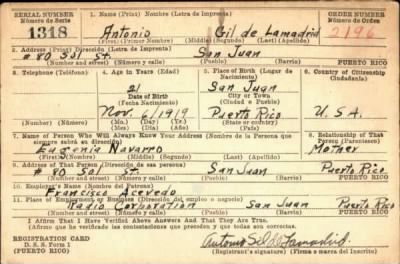 SERIAL NUMBER 1. Name (Print) Nombre (Letra de Imprenta) ORDER NUMBER
Número de Serie Número de Orden
1318 Antonio Gil de Lamadrid 2196
(First) (Primer Nombre) (Middle) (Segundo) (Last) (Apellido)
2. Address (Print) Dirección (Letra de Imprenta)
# 80 Sol St. San Juan
(Number and street) (Número y calle) (Town) (Ciudad o Pueblo) PUERTO RICO
3. Telephone (Teléfono) 4. Age in Years (Edad) 5. Place of Birth (Lugar de Nacimiento) 6. Country of Citizenship (Ciudadanía)
21 San Juan
Date of Birth City or Town
(Fecha Nacimiento) (Ciudad o Pueblo)
Nov. 6, 1919 Puerto Rico U.S.A.
(Number) (Número) (Mo.) (Day) (Yr.) (State or country)
(Mes) (Día) (Año) (Estado o país)
7. Name of Person Who Will Always Know Your Address (Nombre de la Persona que siempre sabrá su dirección) 8. Relationship of That Person (Parentesco)
Eugenia Navarro Mother
(First) (Nombre) (Middle) (Segundo) (Last) (Apellido)
9. Address of That Person (Dirección de esa persona)
# 80 Sol St. San Juan Puerto Rico
(Number and street) (Número y calle) (Town) (Ciudad o Pueblo) PUERTO RICO
10. Employer's Name (Nombre del Patrono)
Francisco Acevedo
11. Place of Employment or Business (Dirección del empleo o negocio)
Radio Corporation San Juan Puerto Rico
(Number and street) (Número y calle) (Town) (Ciudad o Pueblo) PUERTO RICO
I Affirm That I Have Verified Above Answers And That They are True.
(Afirmo que he verificado las contestaciones que preceden y que todas son correctas.)
REGISTRATION CARD
D. S. S. Form 1 Antonio Gil de Lamadrid
(PUERTO RICO) (Registrant's signature) (Firma o marca del Inscrito)